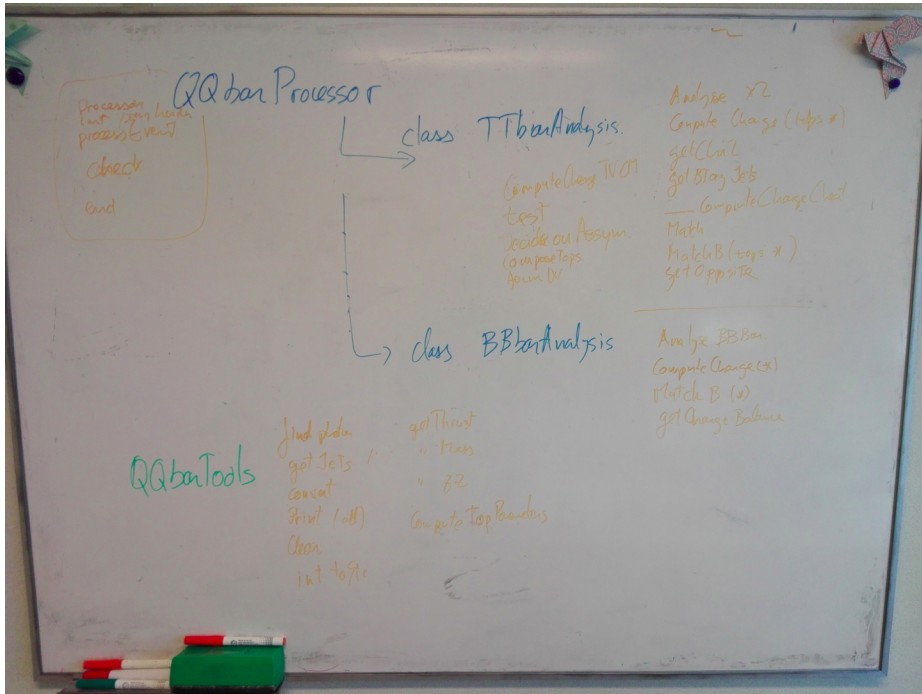 QQbarProcessor
Processor
processEvent
check
end
class TTbarAnalysis
Compute Charge TVCM
test
Decide on Assym.
Compose Tops
Analyse x2
Compute Charge (tops *)
getChi2
get Btag Jets
Compute Charge Cheat
Match
MatchB (tops *)
getOpposite
class BBbarAnalysis
Analyse BBBar
Compute Charge (*)
Match B (*)
get Charge Balance
QQbarTools
find photon
get Jets
convert
Print (all)
Clean
int toStr
getThrust
" Mass
" ZZ
Compute Top Parameters